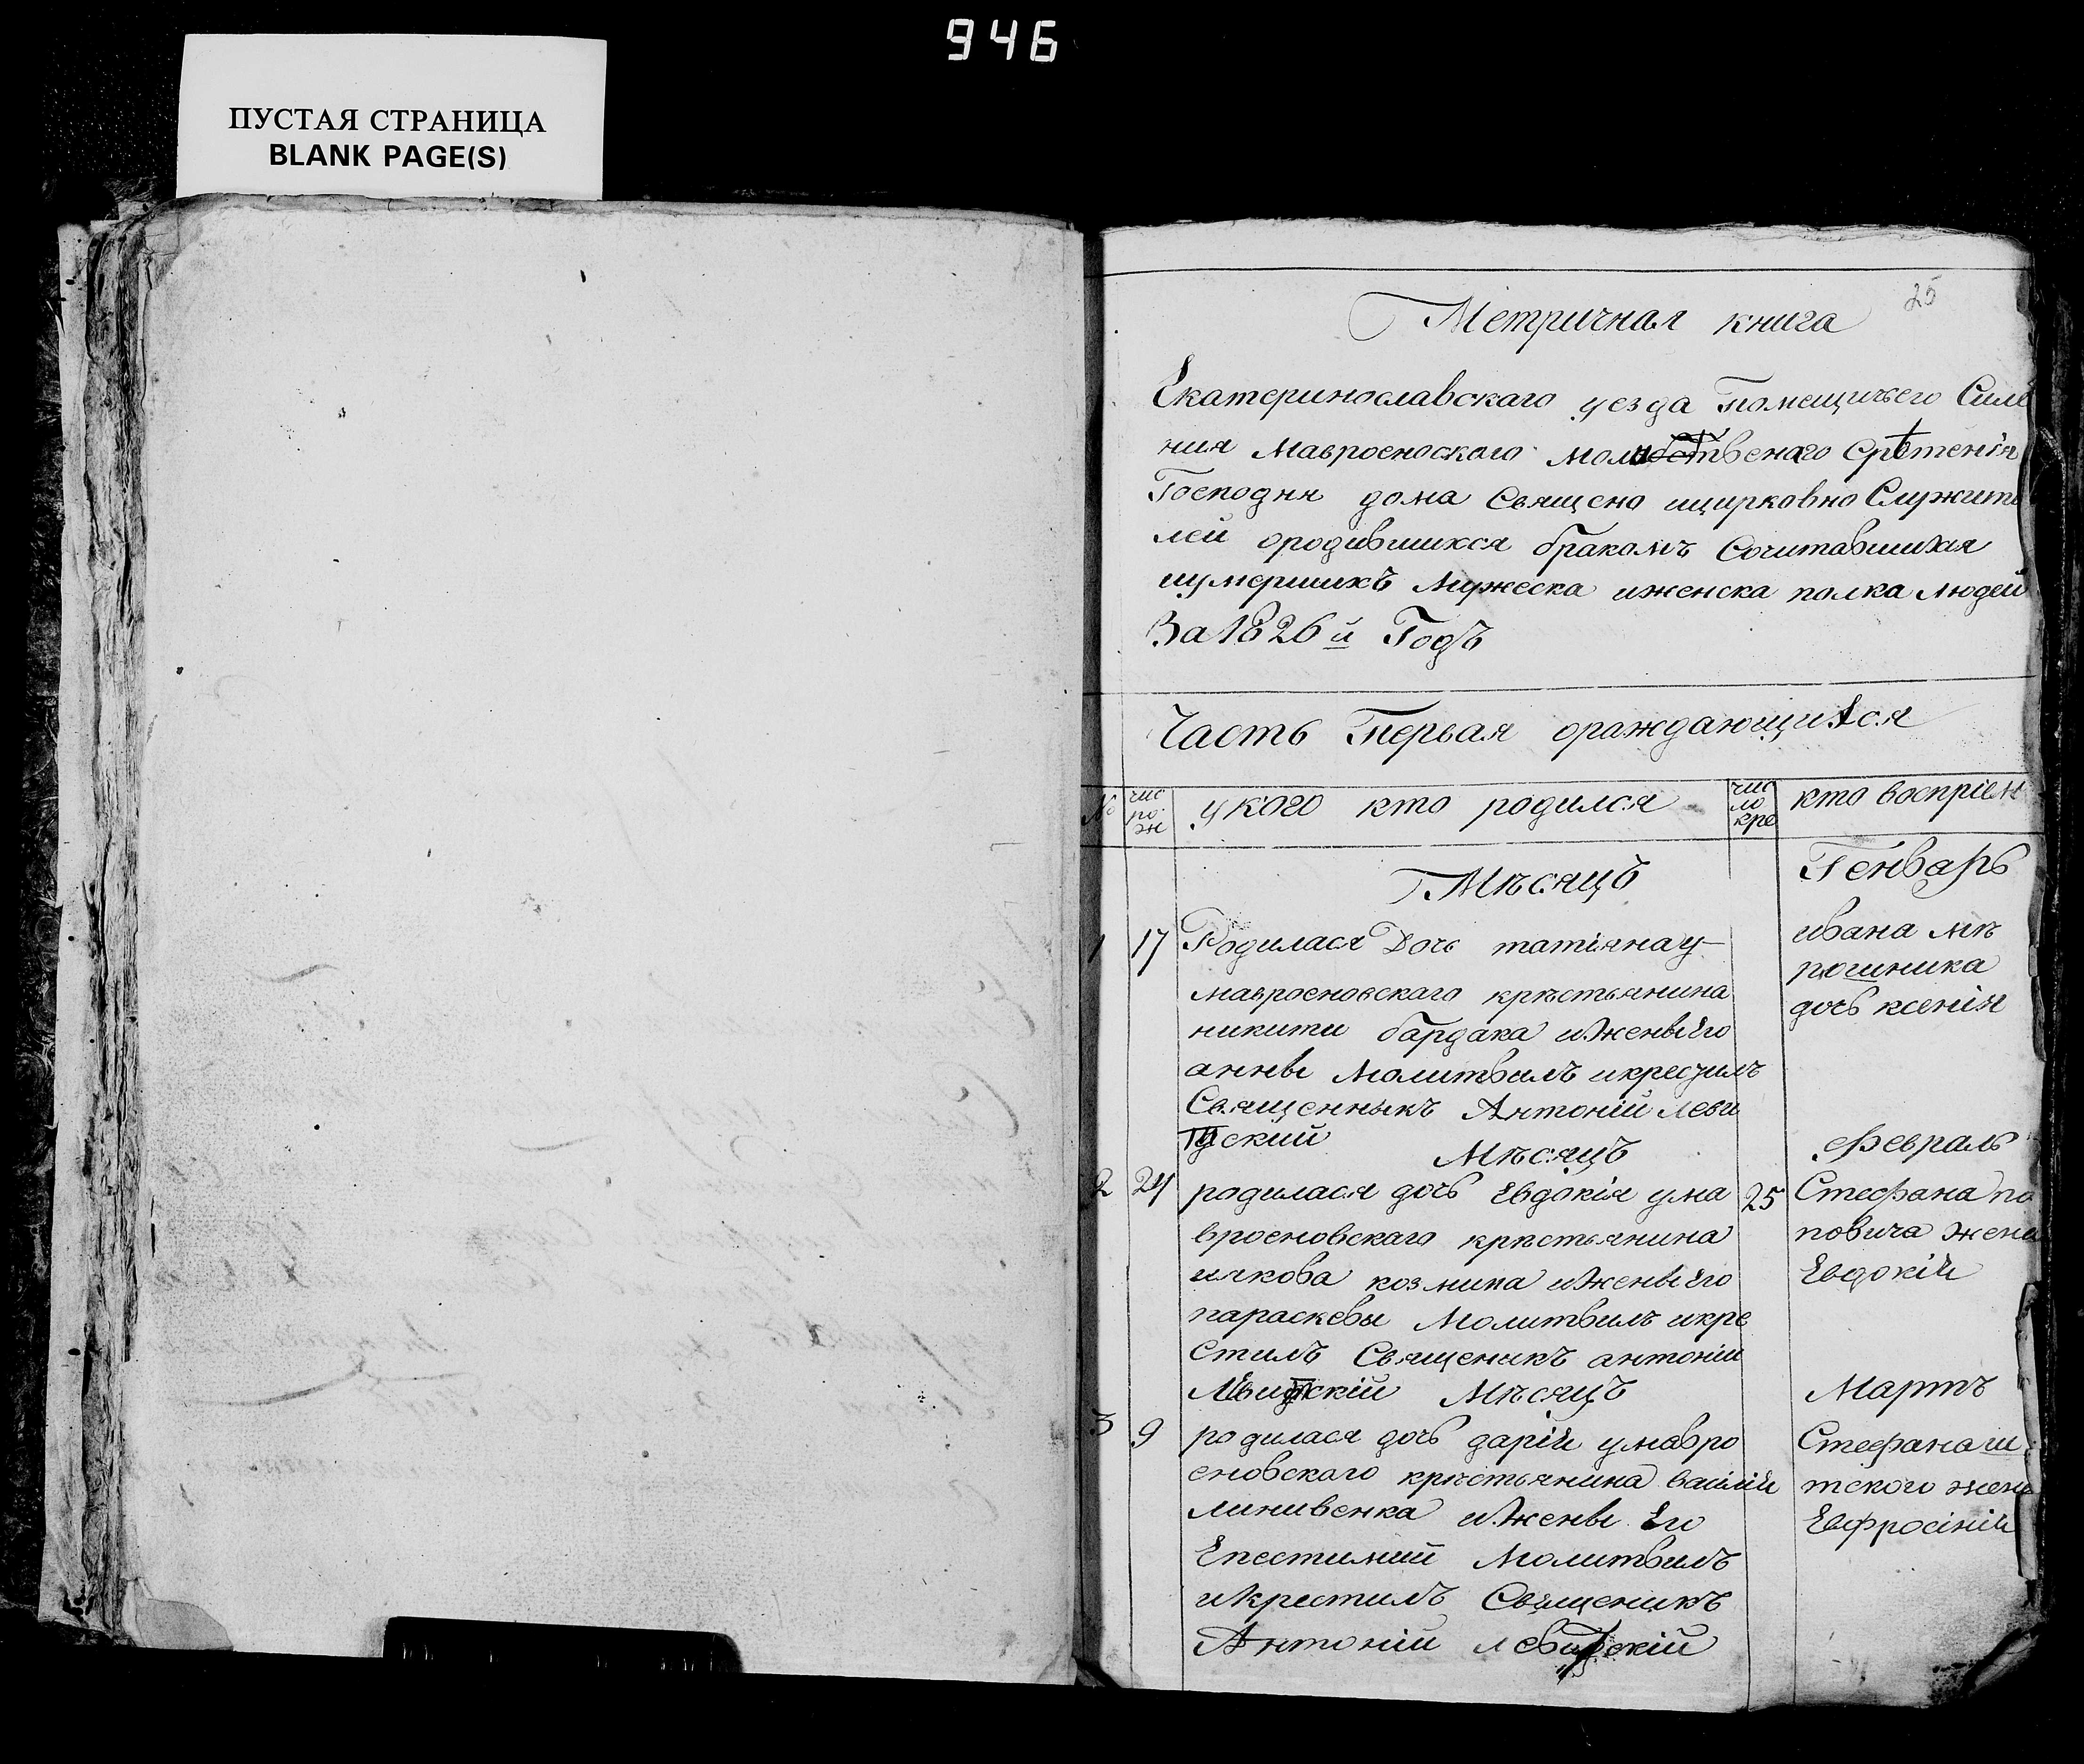 946
ПУСТАЯ СТРАНИЦА
BLANK PAGE(S)
25
Метричная книга
Екатеринославскаго уезда Помещичьего Селе
ния Мавроеноского Срѣтенія
Господня дома Священо ицирковно Служите
лей ородившихся бракомъ Сочитавшихся
иумершихъ Мужеска иженска полка людей
За 1826 й Годъ
Часть Первая ораждающихся
№ чис ро ж укого кто родился чис ло кре кто восприем
Мѣсяцъ Генварь
1 17 Родилася Дочь татіяна у
мавроеновскаго крѣстьянина
никити бардака иЖены Его
анны Молитвилъ икрестилъ
Священныкъ Антоній леви
тский
ивана мѣ
рошника
дочь ксенія
Мѣсяцъ Февраль
2 24 родилася дочь Евдокія ума
вроеновскаго крѣстьянина
иякова козмина иЖены Его
параскевы Молитвилъ икре
стилъ Священикъ антоній
Левитскій
25 Стефана по
повича жена
Евдокій
Мѣсяцъ Мартъ
3 9 родилася дочь дарій умавро
еновского крѣстьянина василій
линивенка иЖены Его
Епестимий Молитвилъ
иКрестилъ Священикъ
Антоній левитскій
Стефана ши
тского жена
Евфросіній